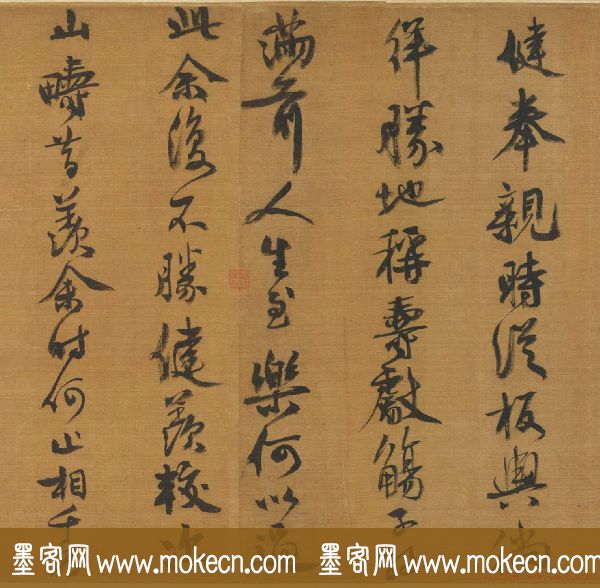 健奉親時從板輿徜
徉勝地稱壽獻觴子孫
滿前人生至樂何以過
此余復不勝健羨較之
山疇昔羨余時何止相千
墨客网 www.mokecn.com 墨客网 www.mokecn.com 墨客网